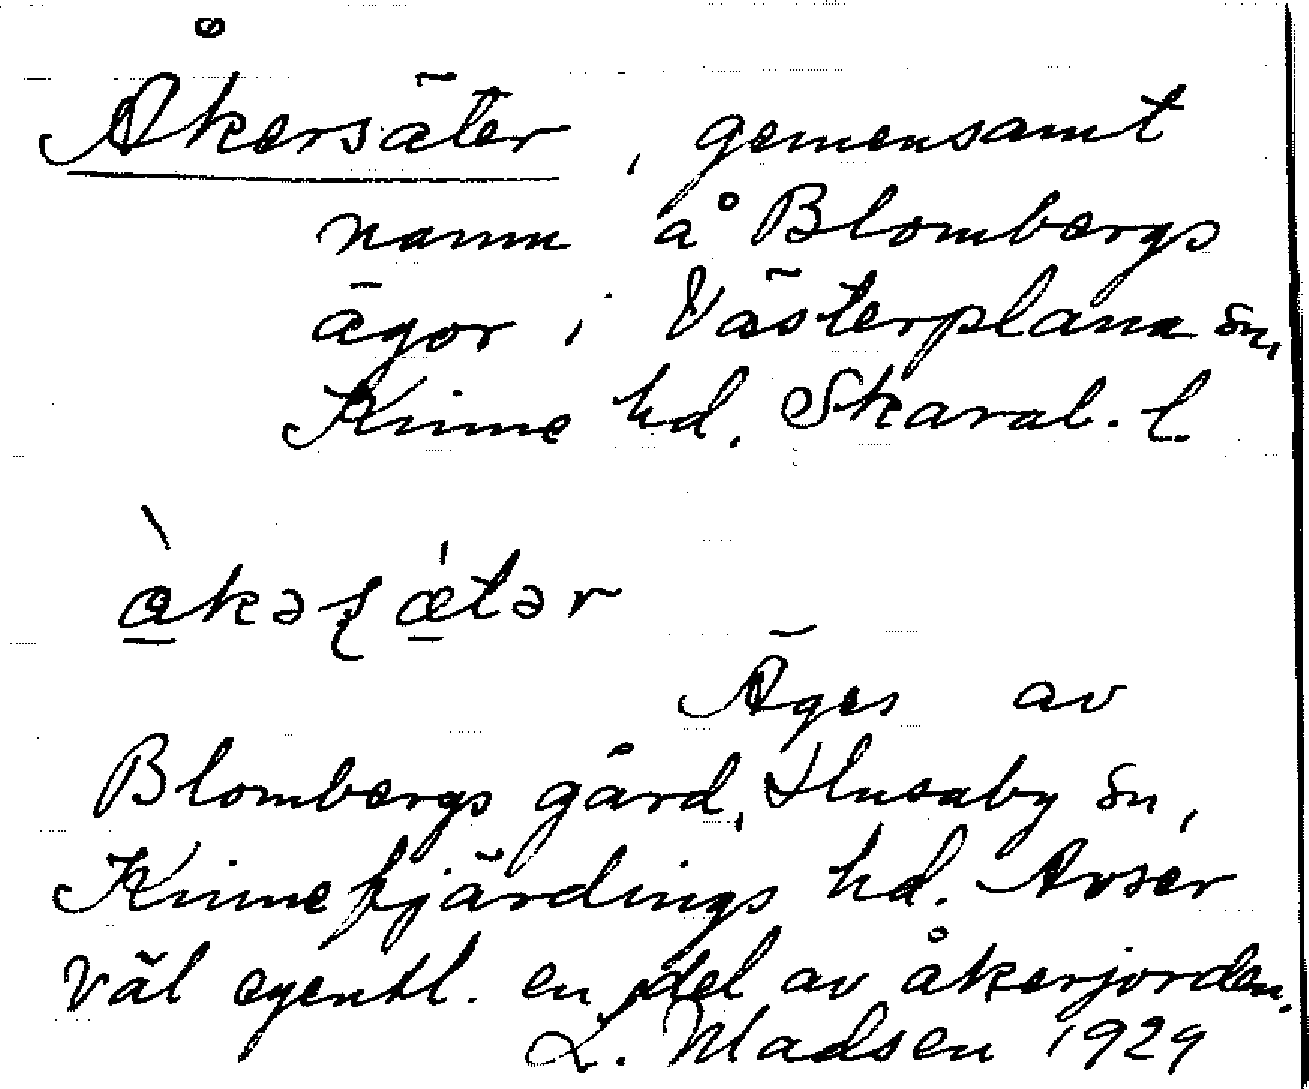 Åkersäter, gemensamt
namn å Blombergs
ägor i Västerplana sn,
Kinne hd, Skarab. l.
àkəʂǽtər
Äges av
Blombergs gård, Husaby sn,
Kinnefjärdings hd. Avser
väl egentl. en del av åkerjorden.
L. Madsen 1929